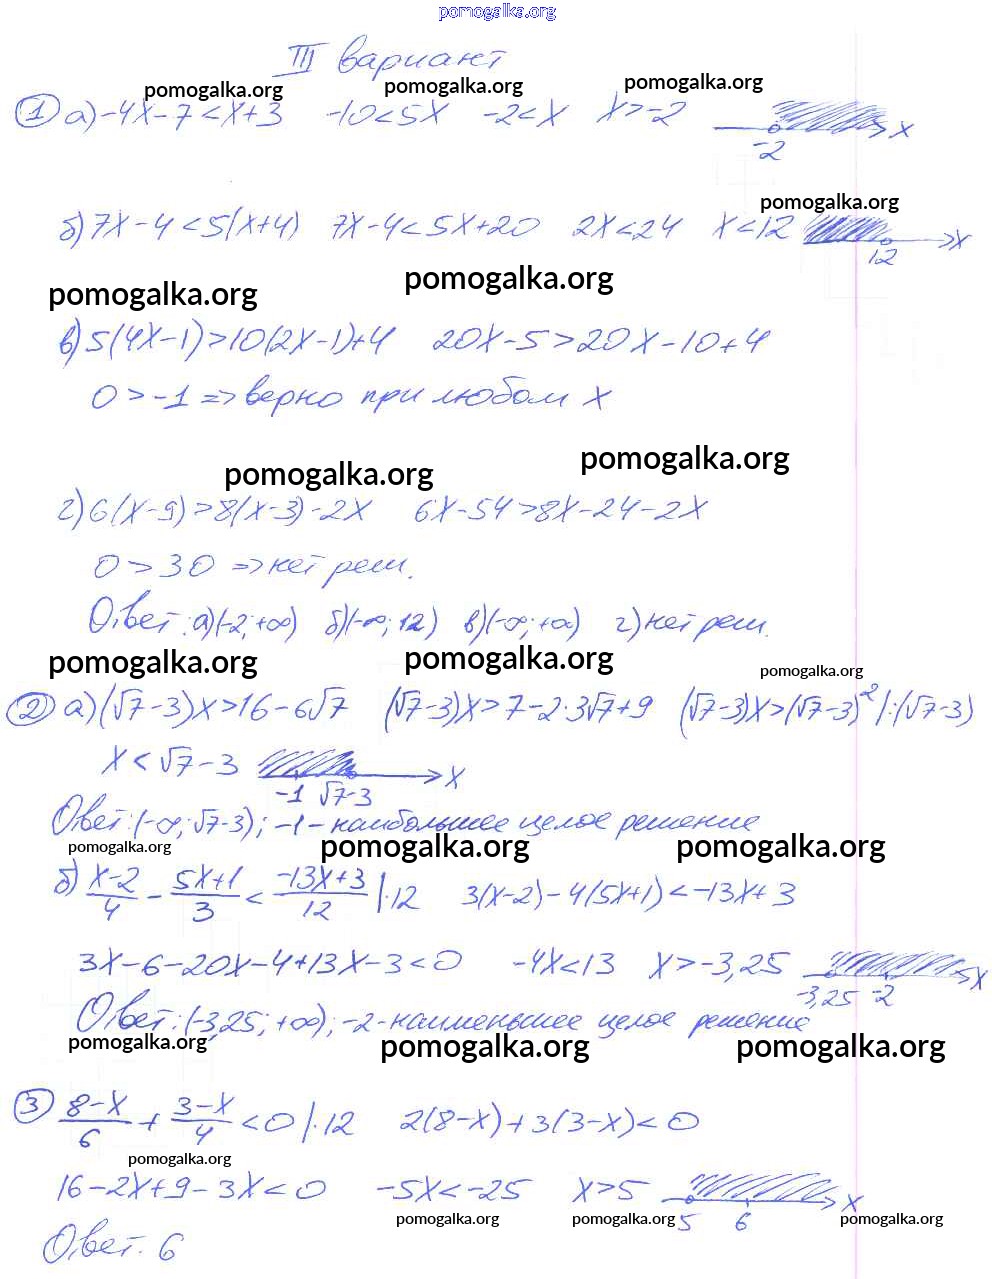 pomogalka.org
III вариант
pomogalka.org pomogalka.org pomogalka.org
① а) -4x-7<x+3 -10<5x -2<x x>-2 x
-2
pomogalka.org
б) 7x-4<5(x+4) 7x-4<5x+20 2x<24 x<12 x
12
pomogalka.org pomogalka.org
в) 5(4x-1)>10(2x-1)+4 20x-5>20x-10+4
0>-1 => верно при любом x
pomogalka.org pomogalka.org
г) 6(x-9)>8(x-3)-2x 6x-54>8x-24-2x
0>30 => нет реш.
Ответ: а)(-2;+∞) б)(-∞;12) в)(-∞;+∞) г) нет реш.
pomogalka.org pomogalka.org pomogalka.org
② а) (√7-3)x>16-6√7 (√7-3)x>7-2·3√7+9 (√7-3)x>(√7-3)² |:(√7-3)
x<√7-3 x
-1 √7-3
Ответ: (-∞;√7-3); -1 - наибольшее целое решение
pomogalka.org pomogalka.org pomogalka.org
б) (x-2)/4 - (5x+1)/3 < (-13x+3)/12 |·12 3(x-2)-4(5x+1)<-13x+3
3x-6-20x-4+13x-3<0 -4x<13 x>-3,25 x
-3,25 -2
Ответ: (-3,25;+∞); -2 - наименьшее целое решение
pomogalka.org pomogalka.org pomogalka.org
③ (8-x)/6 + (3-x)/4 < 0 |·12 2(8-x)+3(3-x)<0
pomogalka.org
16-2x+9-3x<0 -5x<-25 x>5 x
5 6
pomogalka.org pomogalka.org pomogalka.org
Ответ: 6